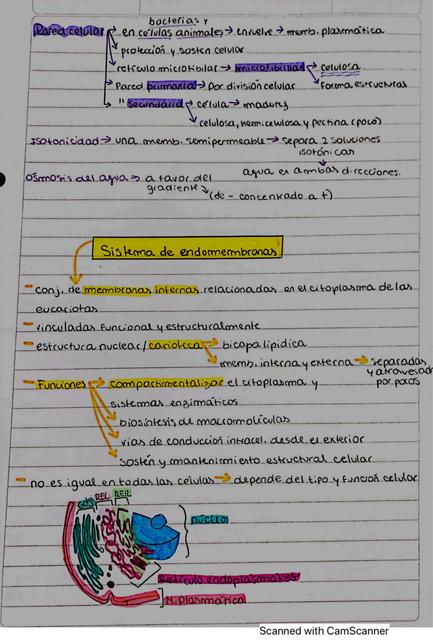 bacterias y
Pared celular → en células animales → envuelve → memb. plasmática
→ protección y sostén celular
→ retículo microfibrilar → microfibrillas → celulosa
→ forma estructuras
→ Pared primaria → por división celular
→ " secundaria → célula → madurez
→ celulosa, hemicelulosa y pectina (poco)
Isotonicidad → una memb. semipermeable → separa 2 soluciones
isotónicas
agua es ambas direcciones.
Osmosis del agua → a favor del
gradiente → (de - concentrado a +)
Sistema de endomembranas
- conj. de membranas internas relacionadas en el citoplasma de las
eucariotas
- vinculadas funcional y estructuralmente
- estructura nuclear / carioteca → bicapa lipidica
→ memb. interna y externa → separadas
y atravesad
por poros
- Funciones → compartimentalizar el citoplasma y
sistemas enzimáticos
→ biosíntesis de macromoléculas
→ vias de conducción intracel. desde el exterior
→ sostén y mantenimiento estructural celular
- no es igual en todas las células → depende del tipo y función celular
REL
RER
núcleo
Retículo endoplasmático
M. plasmática
Scanned with CamScanner